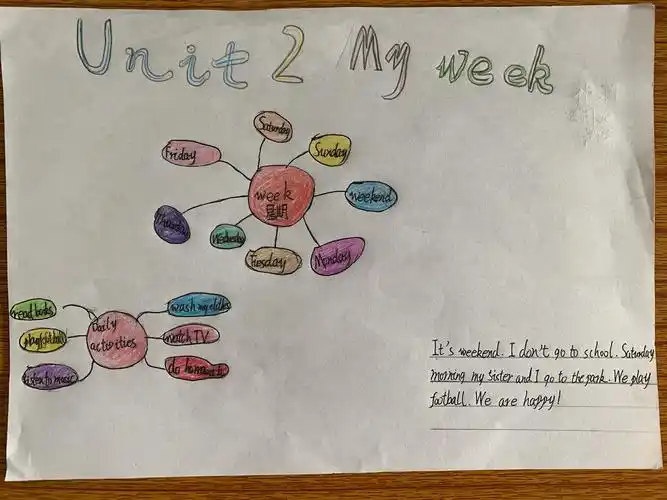 Unit 2 My week
Saturday
Friday
Sunday
week
星期
weekend
Thursday
Wednesday
Tuesday
Monday
read books
wash my clothes
Daily
activities
play football
watch TV
listen to music
do homework
It's weekend. I don't go to school. Saturday
morning my sister and I go to the park. We play
football. We are happy!